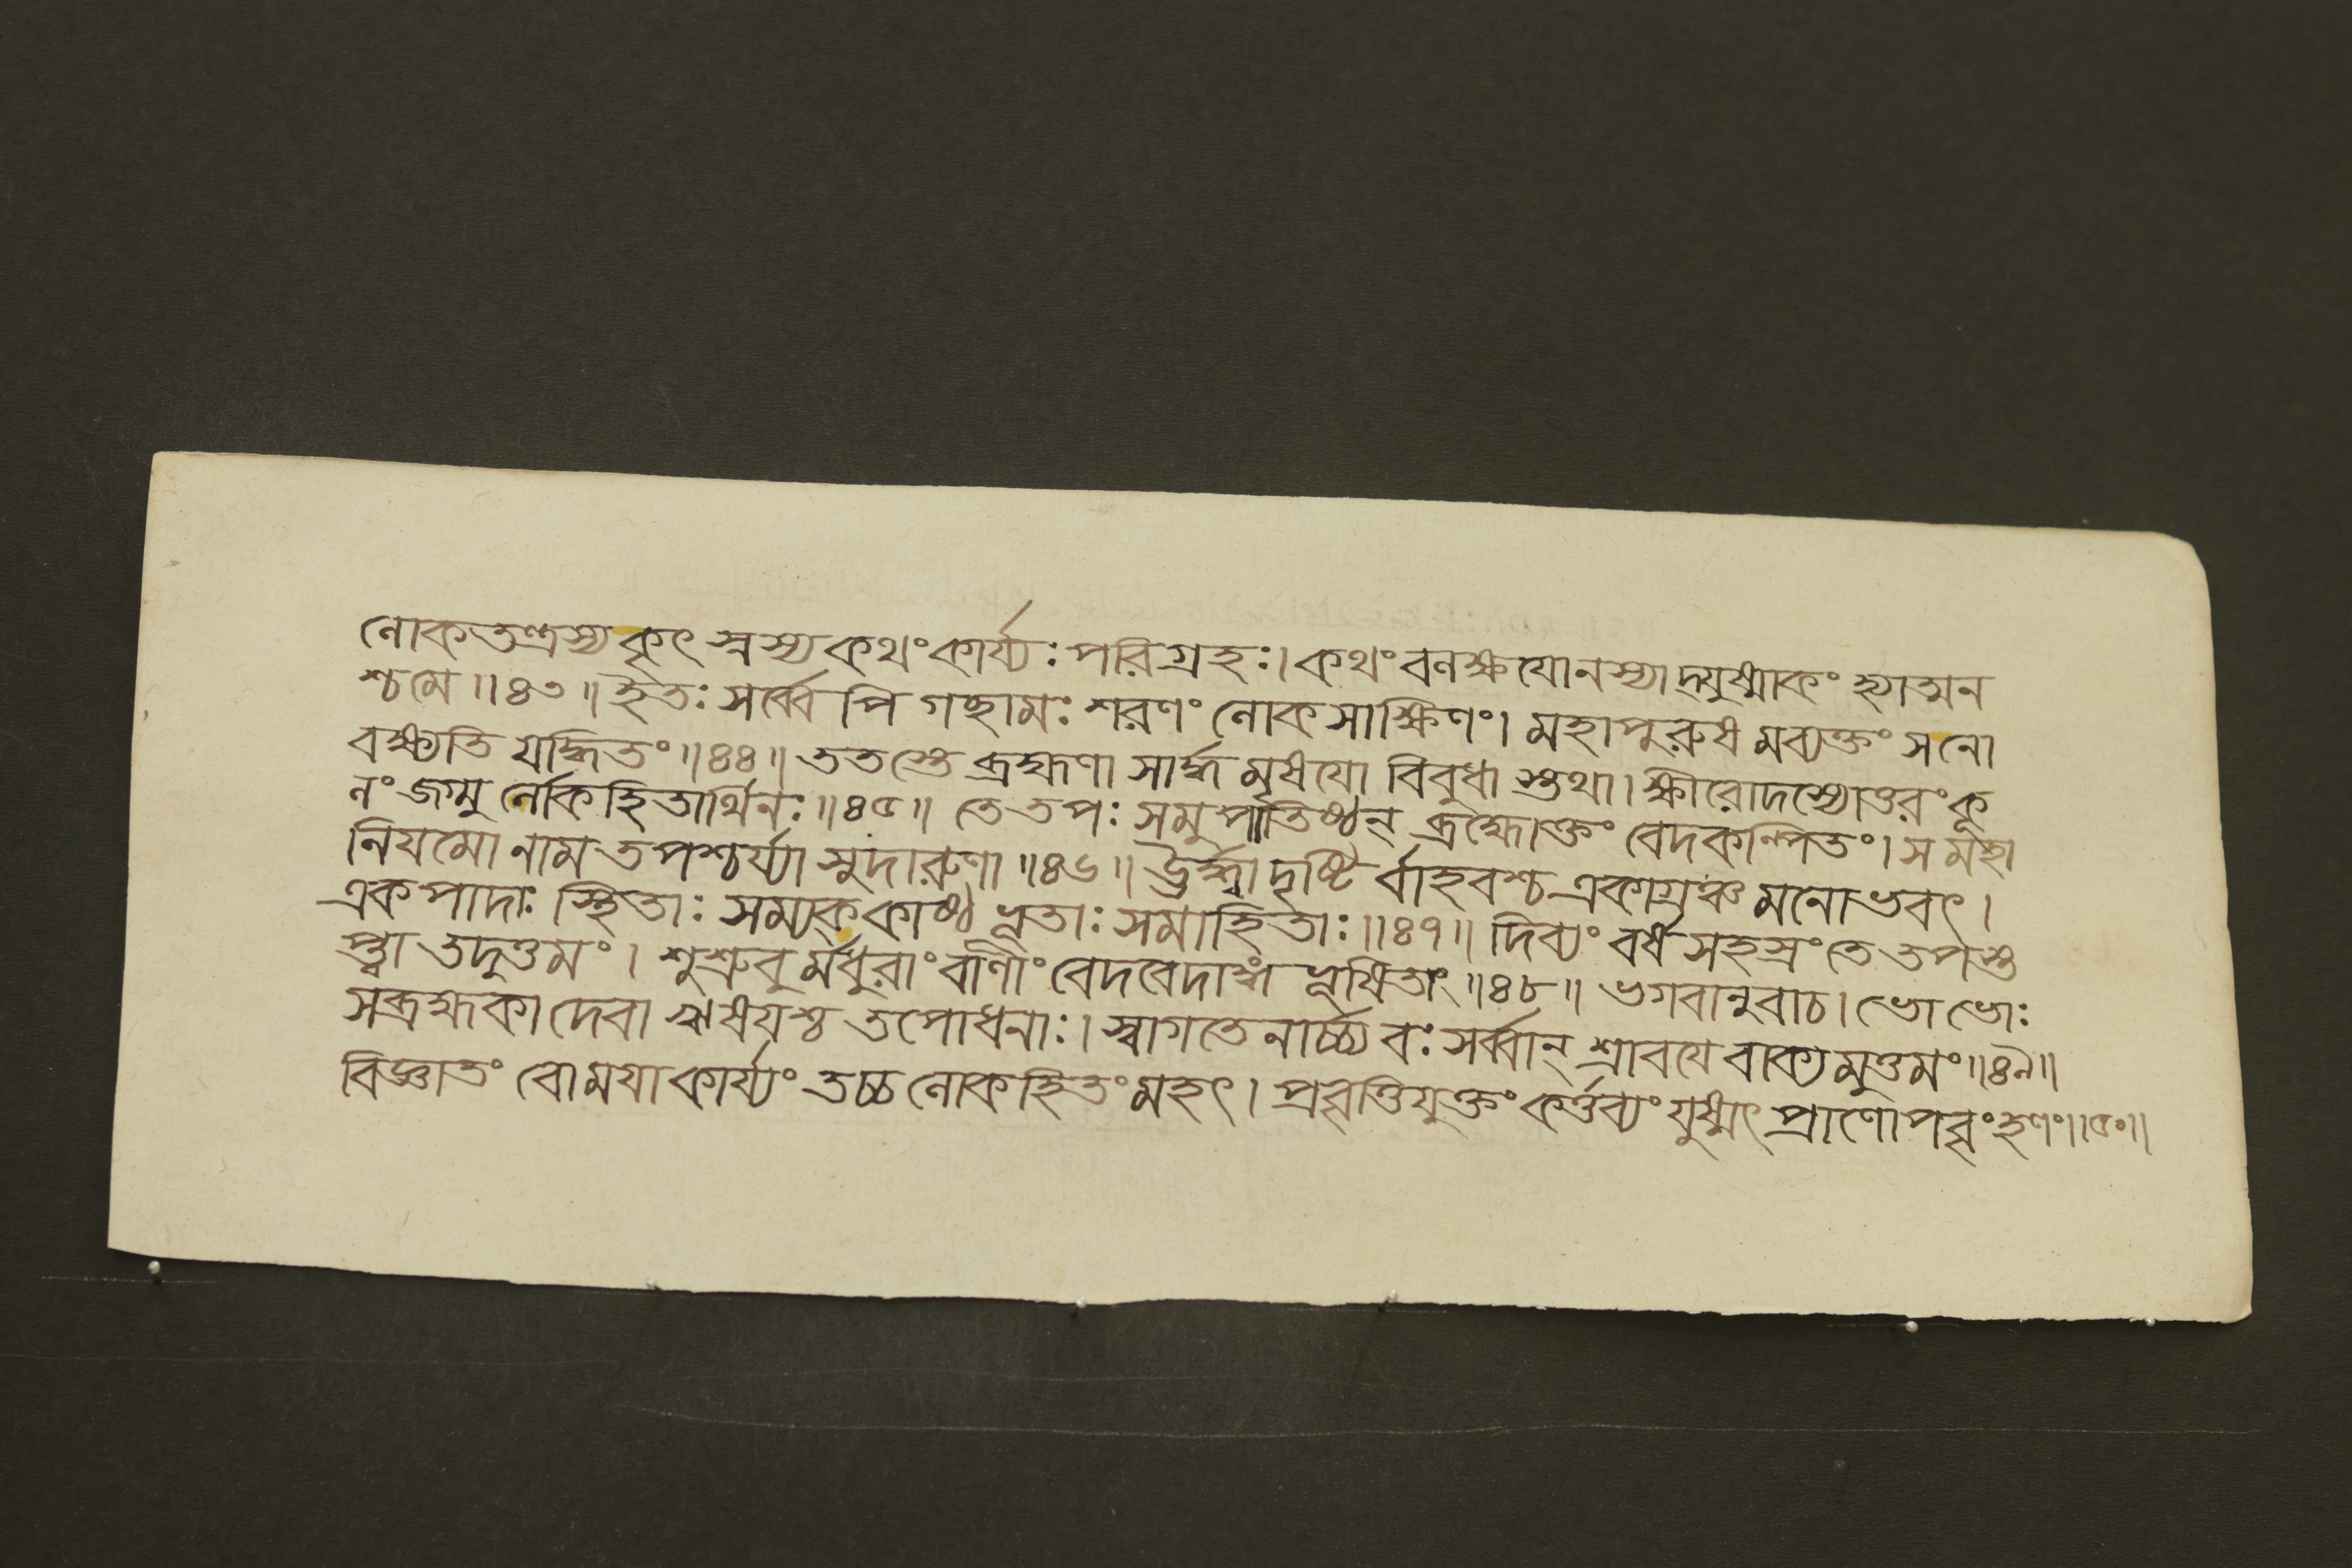 লোকতন্ত্রস্য কৃৎস্নস্য কথং কার্য্যঃ পরিগ্রহঃ। কথং বলক্ষযো ন স্যাদ্যুষ্মাকং হ্যাত্মন
শ্চ মে॥৪৩॥ ইতঃ সর্ব্বেপি গচ্ছামঃ শরণং লোকসাক্ষিণং। মহাপুরুষমব্যক্তং স নো
বক্ষ্যতি যদ্ধিতং॥৪৪॥ ততস্তে ব্রহ্মণা সার্দ্ধমৃষযো বিবুধাস্তথা। ক্ষীরোদস্যোত্তরং কূ
লং জগ্মুর্লোকহিতার্থিনঃ॥৪৫॥ তে তপঃ সমুপাতিষ্ঠন্ ব্রহ্মোক্তং বেদকল্পিতং। স মহা
নিযমো নাম তপশ্চর্য্যা সুদারুণা॥৪৬॥ ঊর্দ্ধ্বা দৃষ্টির্বাহবশ্চ একাগ্রঞ্চ মনোভবৎ।
একপাদাঃ স্থিতাঃ সম্যক্ কাষ্ঠভূতাঃ সমাহিতাঃ॥৪৭॥ দিব্যং বর্ষসহস্রং তে তপস্ত
প্ত্বা তদুত্তমং। শুশ্রুবুর্মধুরাং বাণীং বেদবেদাঙ্গভূষিতাং॥৪৮॥ ভগবানুবাচ। ভো ভোঃ
সব্রহ্মকা দেবা ঋষযশ্চ তপোধনাঃ। স্বাগতেনার্চ্চ্য বঃ সর্ব্বান্ শ্রাবযে বাক্যমুত্তমং॥৪৯॥
বিজ্ঞাতং বো মযা কার্য্যং তচ্চ লোকহিতং মহৎ। প্রবৃত্তিযুক্তং কর্ত্তব্যং যুষ্মৎপ্রাণোপবৃংহণং॥৫০॥